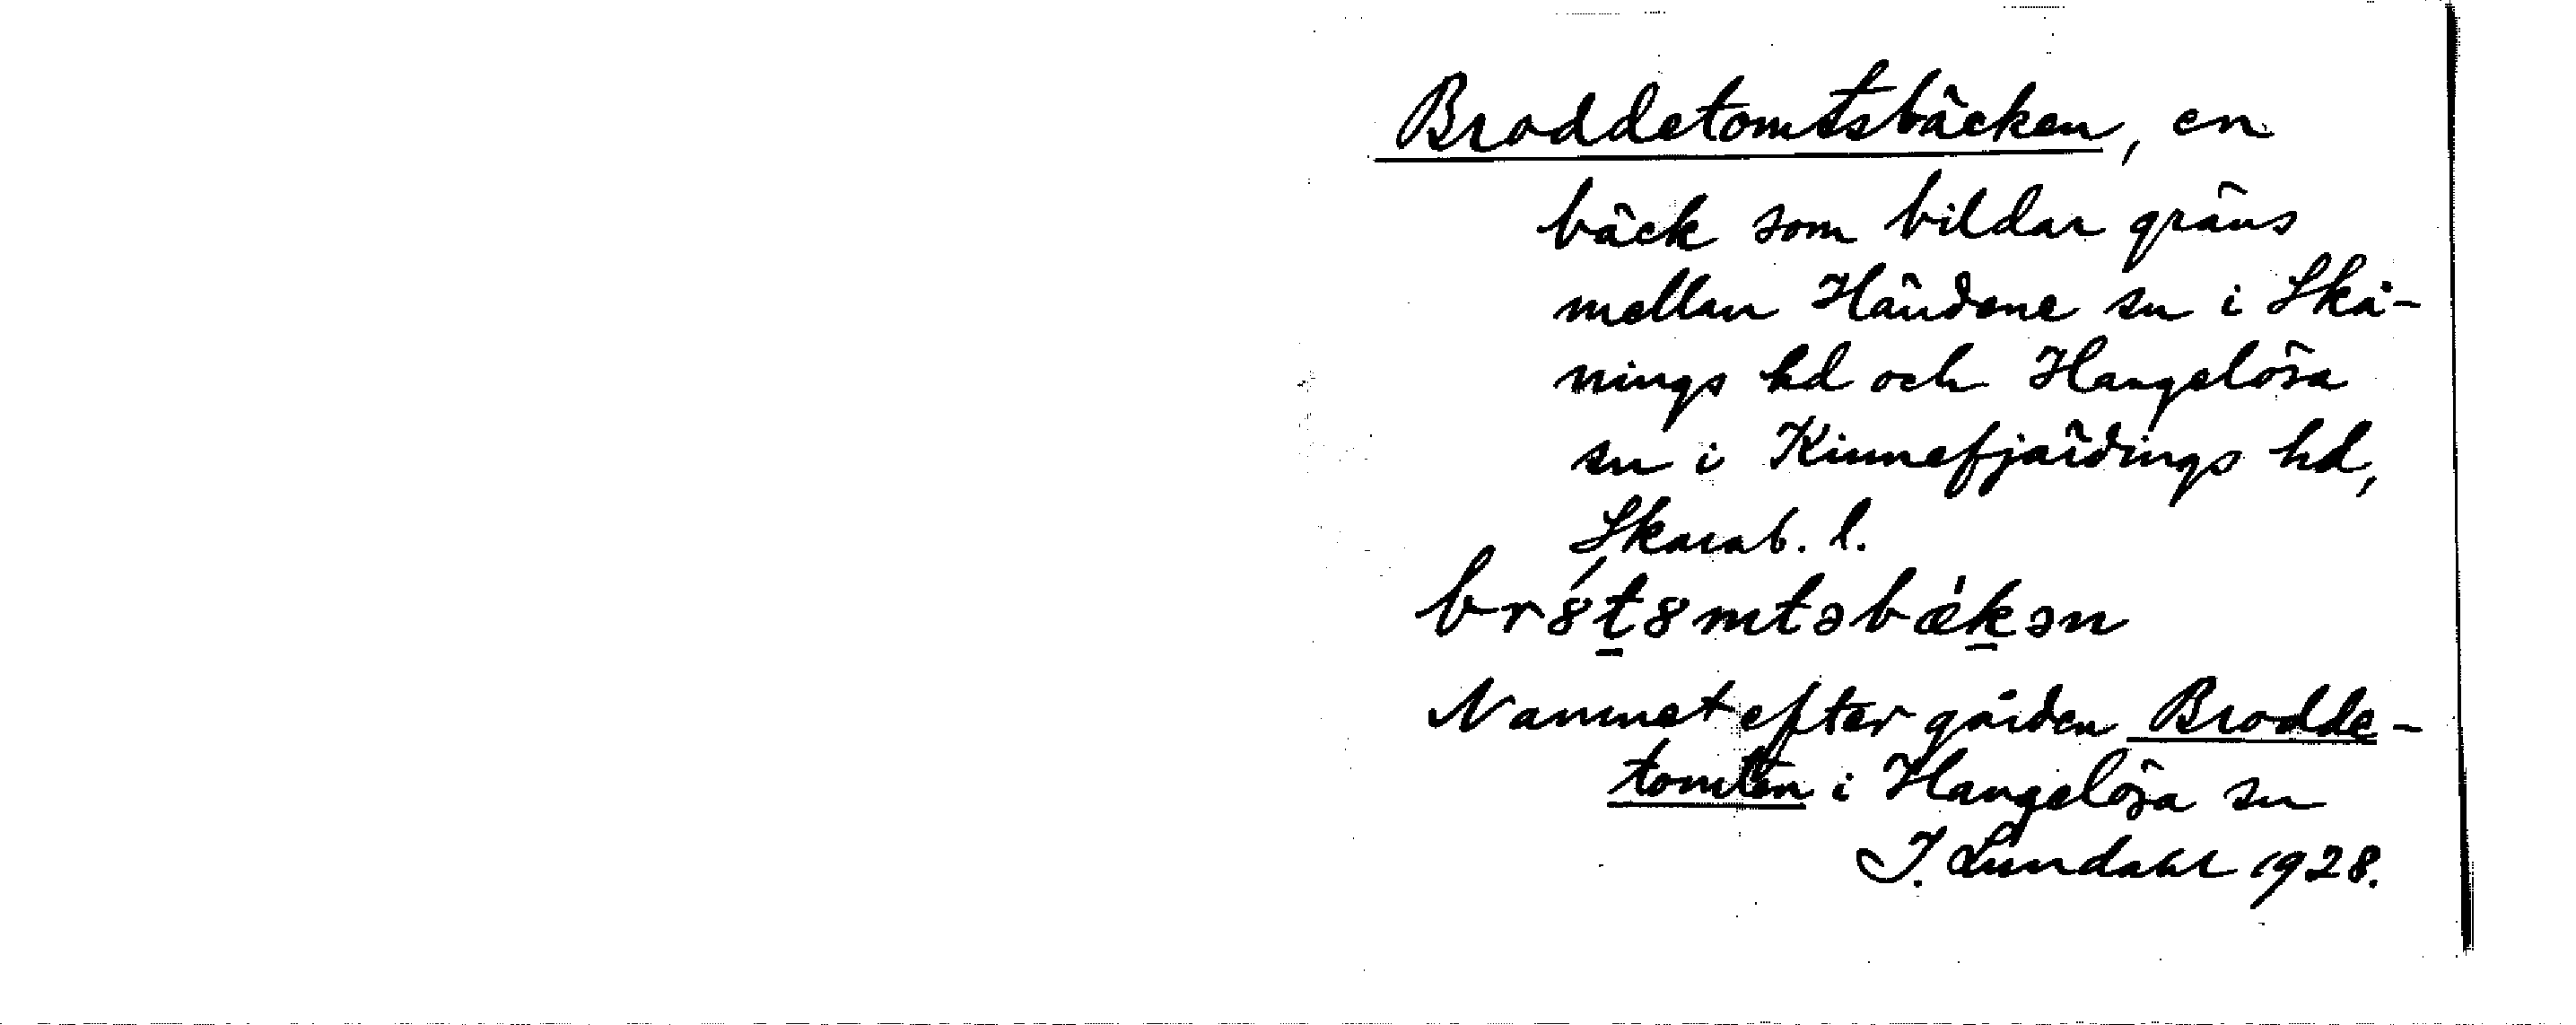 Broddetomtsbäcken, en
bäck som bildar gräns
mellan Händene sn i Skå-
nings hd och Hangelösa
sn i Kinnefjärdings hd,
Skarab. l.
br8́t8mtəbǽkən
Namnet efter gården Brodde-
tomten i Hangelösa sn
I. Lundahl 1928.